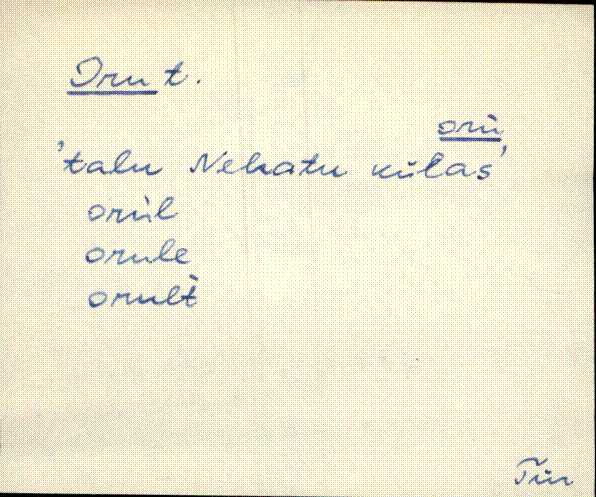 Oru t.
orù
'talu Nekatu külas'
orùl
orule
orult̀
Tür